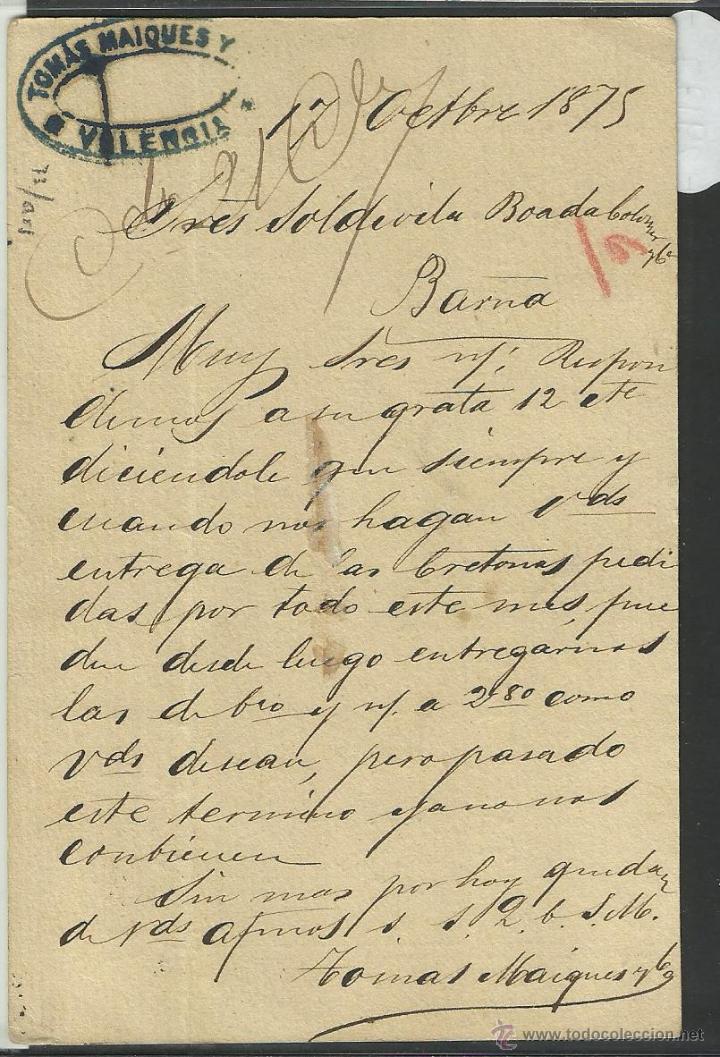 TOMÁS MAIQUES Y
VALENCIA
17 Octbre 1875
Sres Soldevila Boada Colomer y Ca
Barna
Muy Sres ns: Respon
demos a su grata 12 cte
diciendole que siempre y
cuando nos hagan Vds
entrega de las Cretonas pedi
das por todo este mes, pue
den desde luego entregarnos
las de bco y n/. a 2'80 como
Vds desean, pero pasado
este termino ya no nos
conbienen
Sin mas por hoy quedan
de Vds afmos s. s. Q. b. S. M.
Tomas Maiques y Ca
www.todocoleccion.net